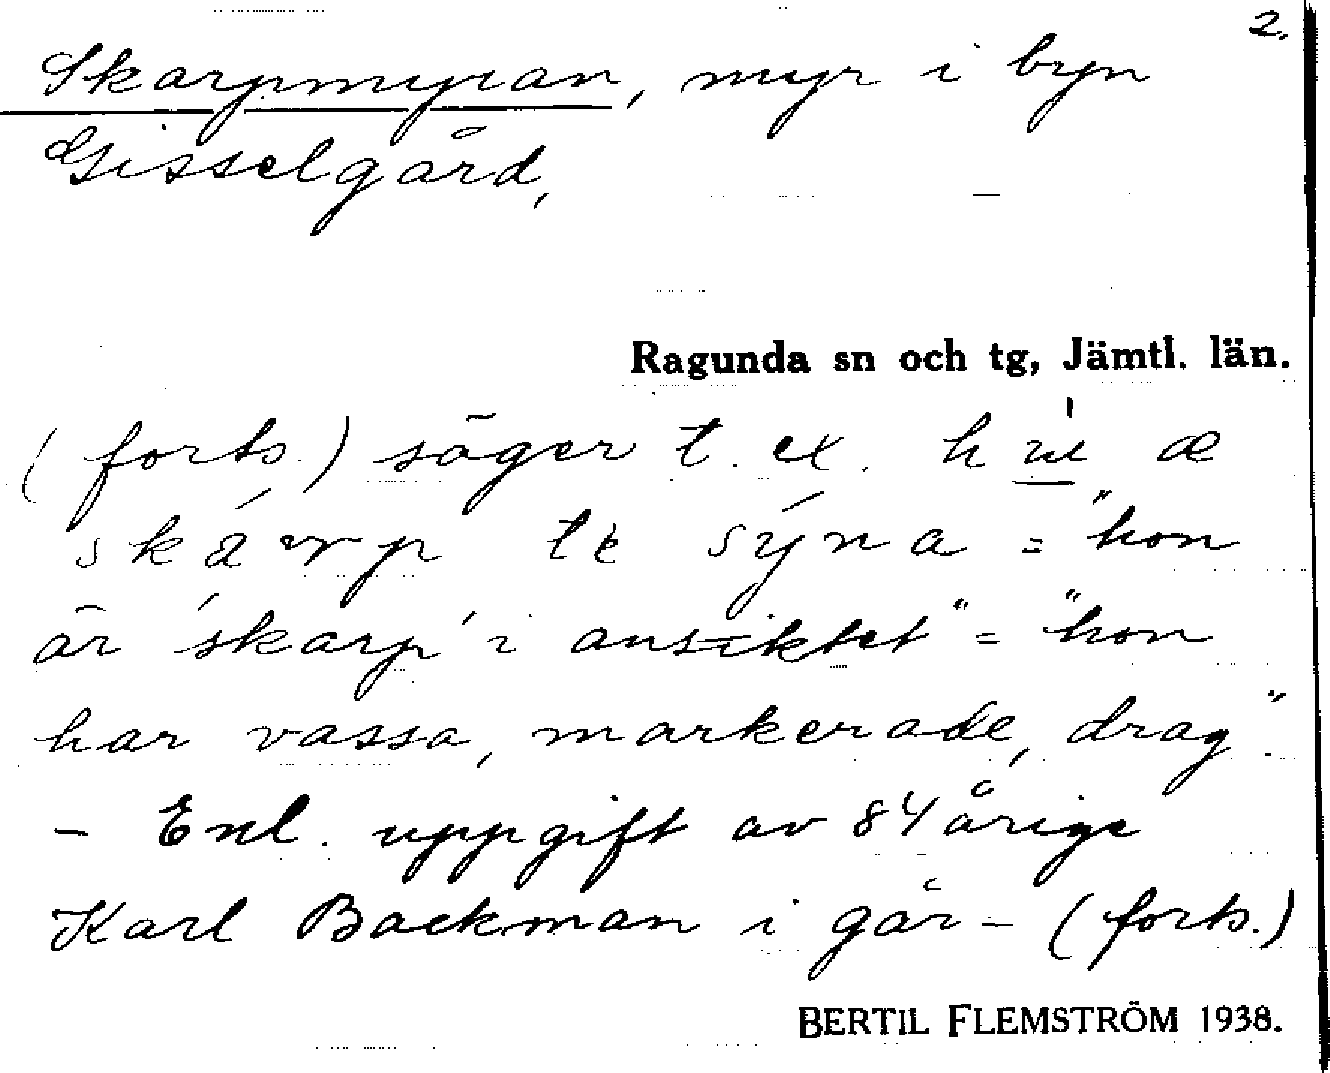 2.
Skarpmyran, myr i byn
Gisselgård,
Ragunda sn och tg, Jämtl. län.
(forts.) säger t. ex. h æ
skárp te sýna = "hon
är 'skarp' i ansiktet" = "hon
har vassa, markerade, drag".
- Enl. uppgift av 84 årige
Karl Backman i går- (forts.)
BERTIL FLEMSTRÖM 1938.